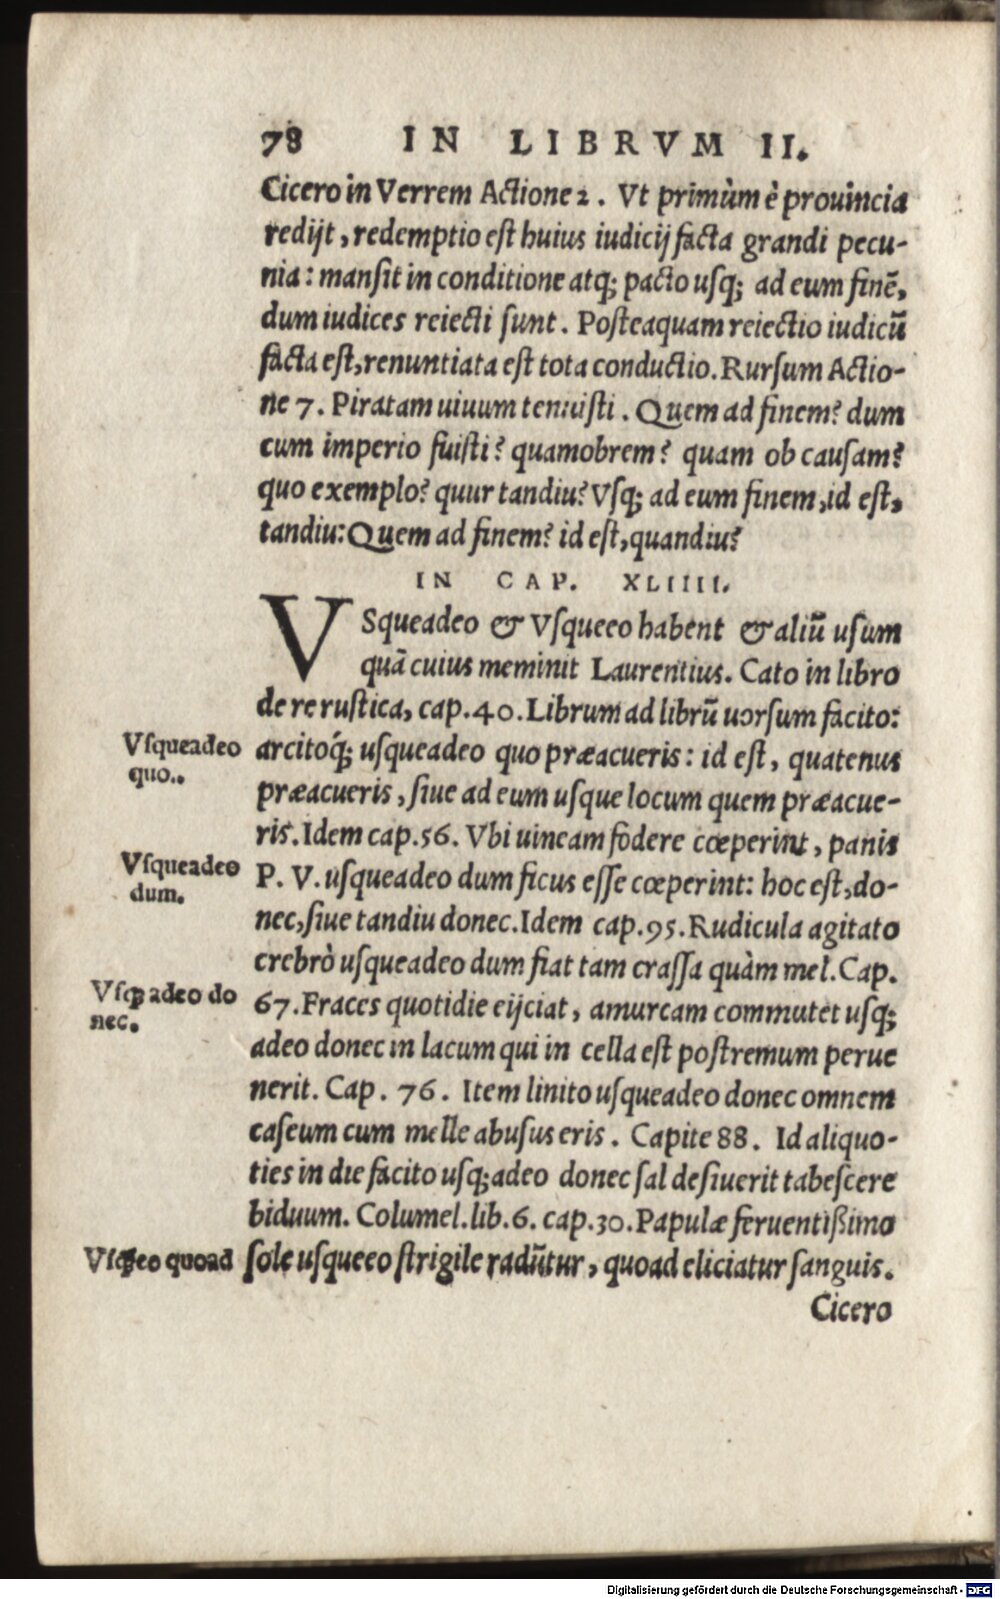 78 IN LIBRVM II.
Cicero in Verrem Actione 2. Vt primùm è prouincia
redijt, redemptio est huius iudicij facta grandi pecu-
nia: mansit in conditione atq; pacto usq; ad eum finē,
dum iudices reiecti sunt. Posteaquam reiectio iudicū
facta est, renuntiata est tota conductio. Rursum Actio-
ne 7. Piratam uiuum tenuisti. Quem ad finem? dum
cum imperio fuisti? quamobrem? quam ob causam?
quo exemplo? quur tandiu? Vsq; ad eum finem, id est,
tandiu: Quem ad finem? id est, quandiu?
IN CAP. XLIIII.
VSqueadeo & Vsqueeo habent & aliū usum
quā cuius meminit Laurentius. Cato in libro
de re rustica, cap. 40. Librum ad librū uorsum facito:
Vsqueadeo
quo..
arcitoq́; usqueadeo quo præacueris: id est, quatenus
præacueris, siue ad eum usque locum quem præacue-
ris. Idem cap. 56. Vbi uineam fodere cœperint, panis
Vsqueadeo
dum.
P. V. usqueadeo dum ficus esse cœperint: hoc est, do-
nec, siue tandiu donec. Idem cap. 95. Rudicula agitato
crebrò usqueadeo dum fiat tam crassa quàm mel. Cap.
Vsq; adeo do
nec.
67. Fraces quotidie eijciat, amurcam commutet usq;
adeo donec in lacum qui in cella est postremum perue
nerit. Cap. 76. Item linito usqueadeo donec omnem
caseum cum melle abusus eris. Capite 88. Id aliquo-
ties in die facito usq; adeo donec sal desiuerit tabescere
biduum. Columel. lib. 6. cap. 30. Papulæ feruentißimo
Vsq;eo quoad
sole usqueeo strigile radūtur, quoad eliciatur sanguis.
Cicero
Digitalisierung gefördert durch die Deutsche Forschungsgemeinschaft - DFG